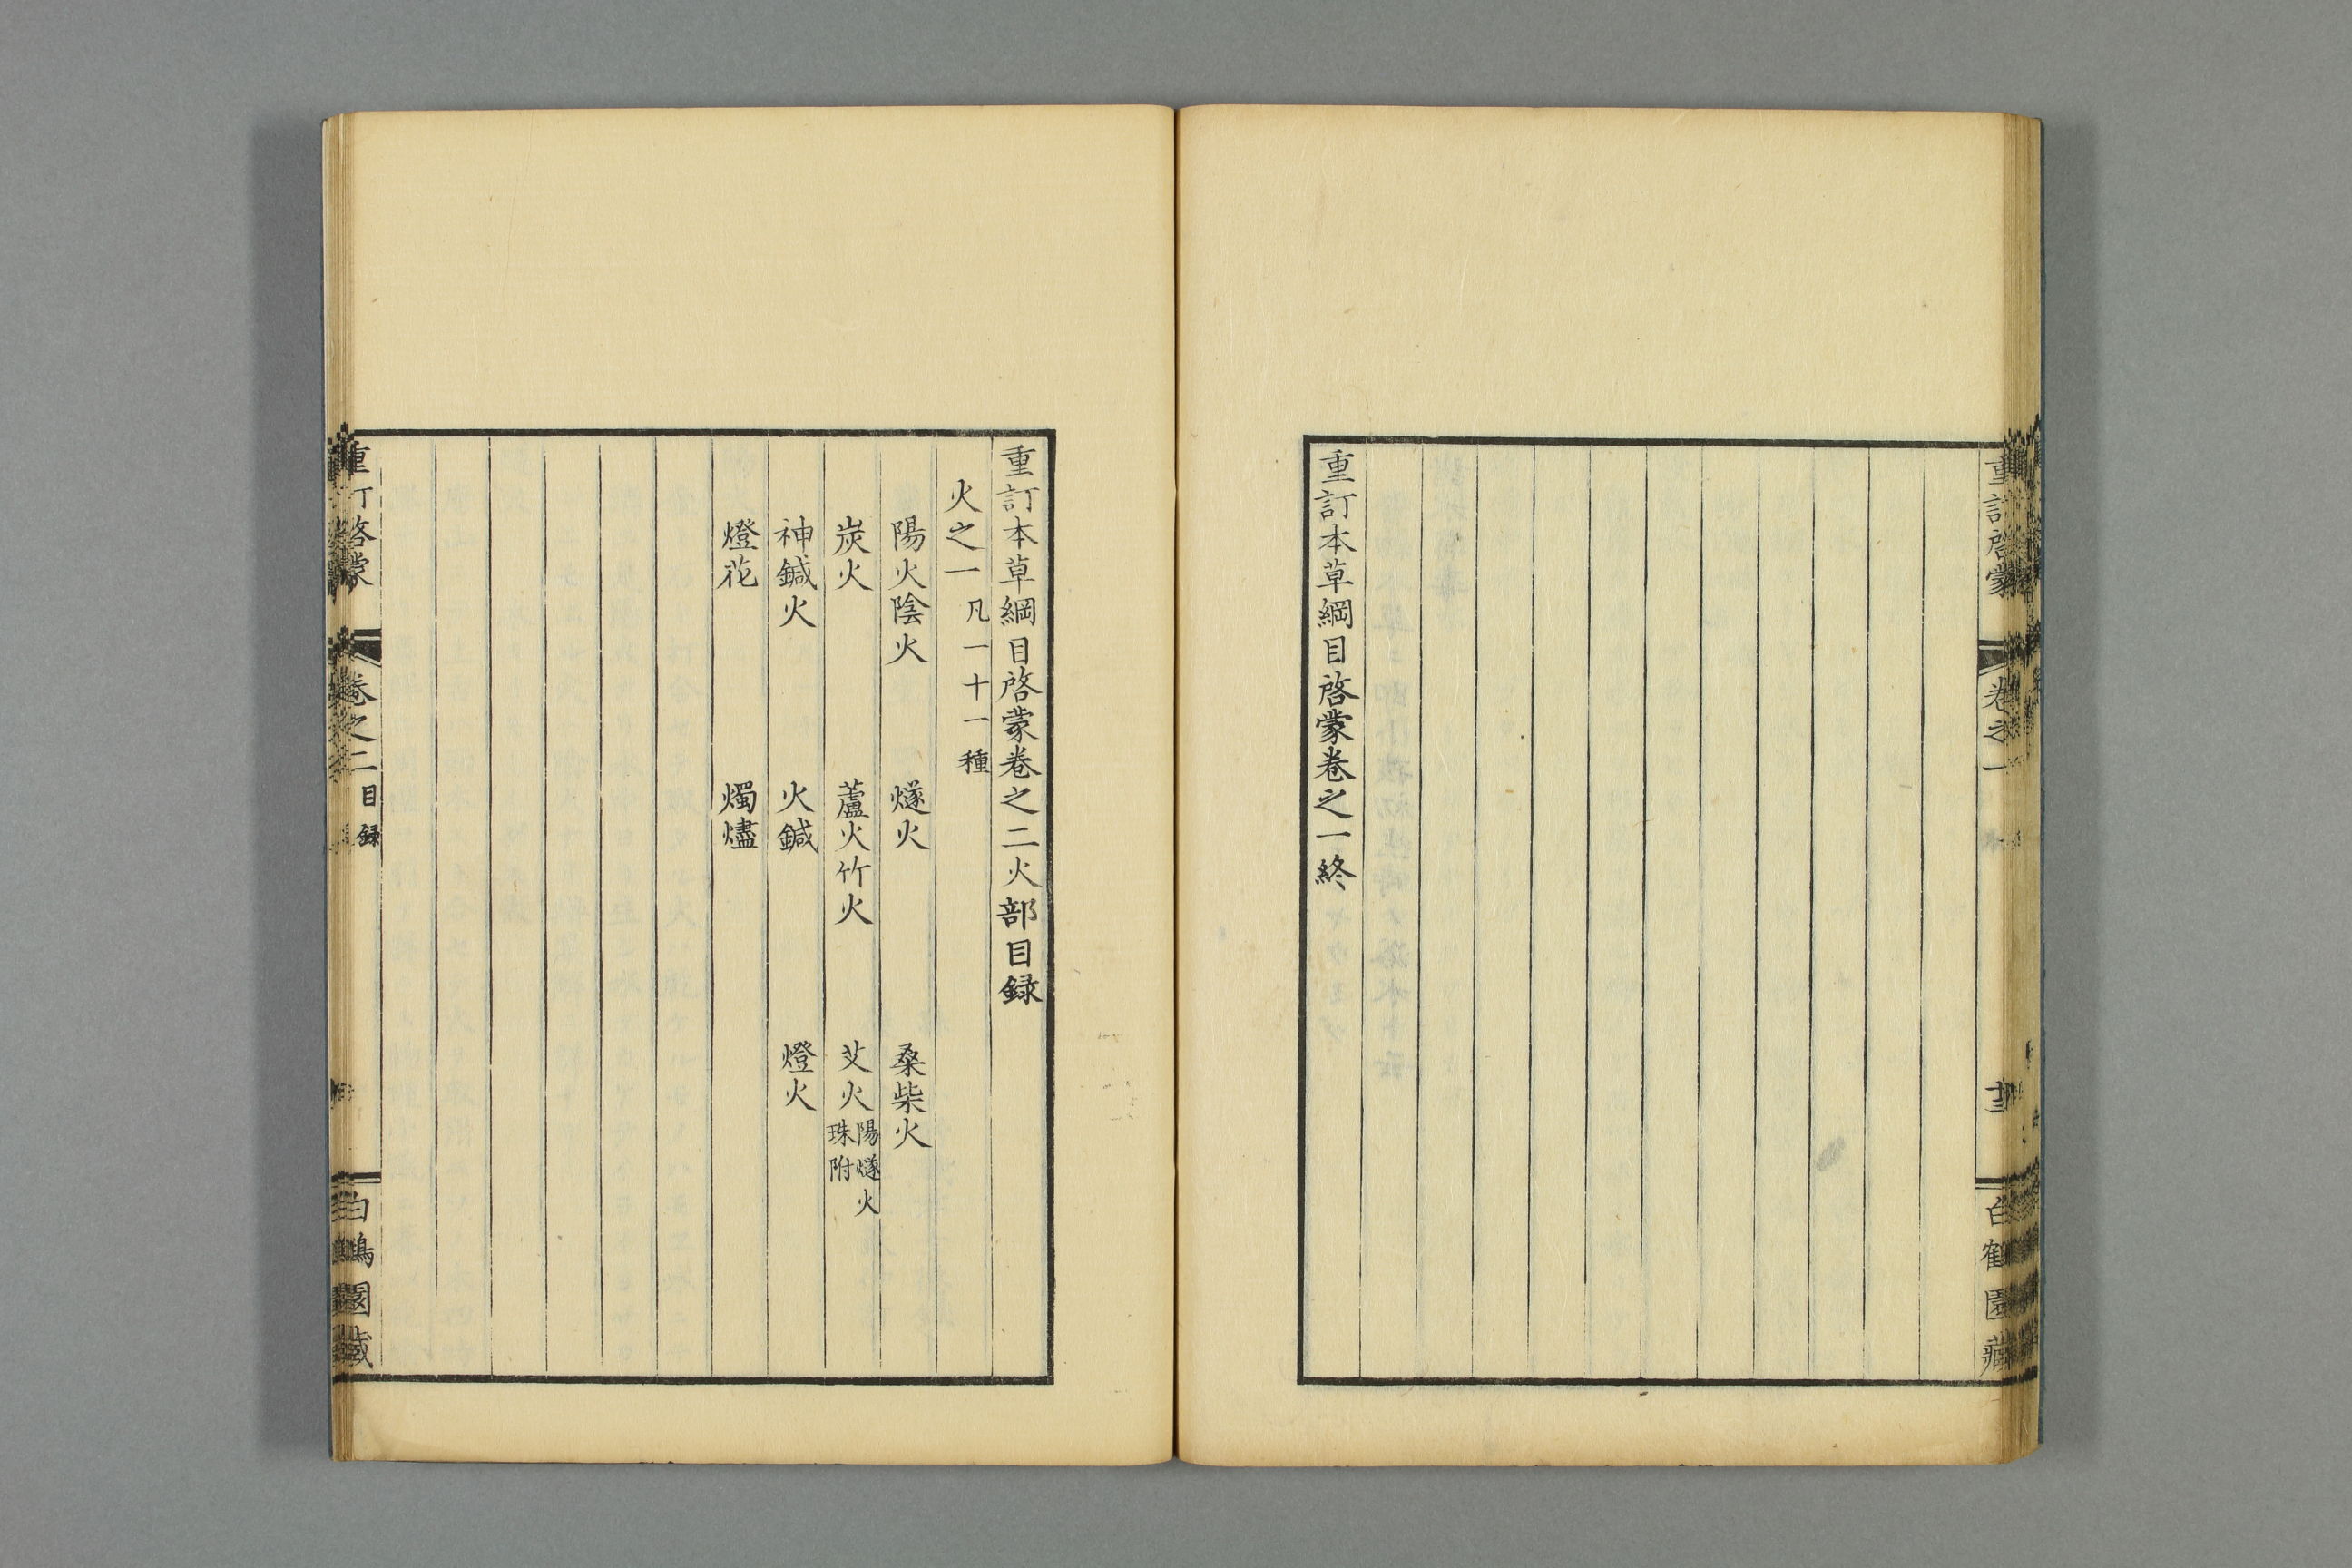 重訂啓蒙 卷之一 白鶴園藏
重訂本草綱目啓蒙卷之一終
重訂本草綱目啓蒙卷之二火部目録
火之一 凡一十一種
陽火陰火 燧火 桑柴火
炭火 蘆火竹火 艾火 陽燧火珠附
神鍼火 火鍼 燈火
燈花 燭燼
重訂啓蒙 卷之二 目録 白鶴園藏